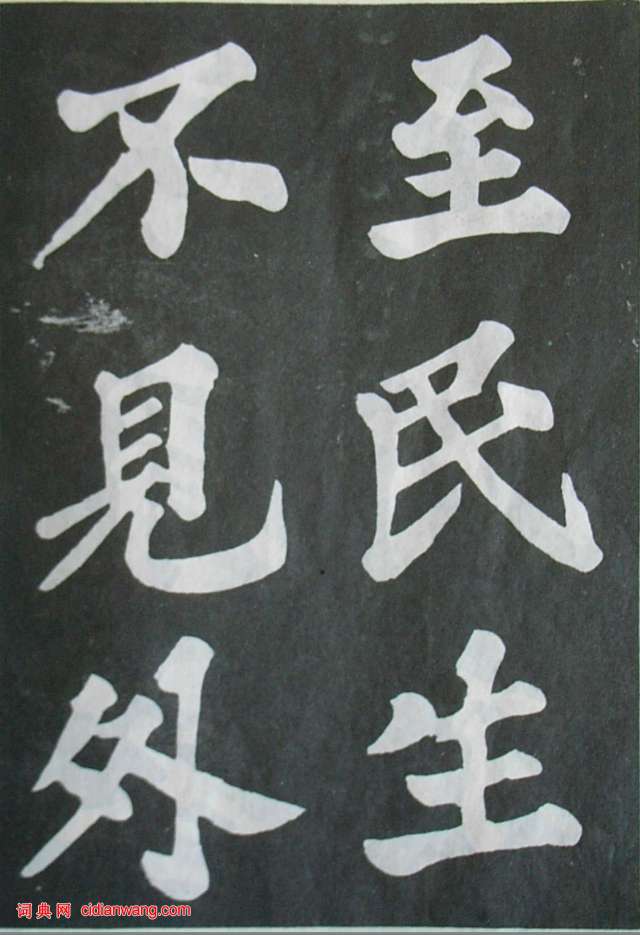 至民生
不見外
词典网 cidianwang.com